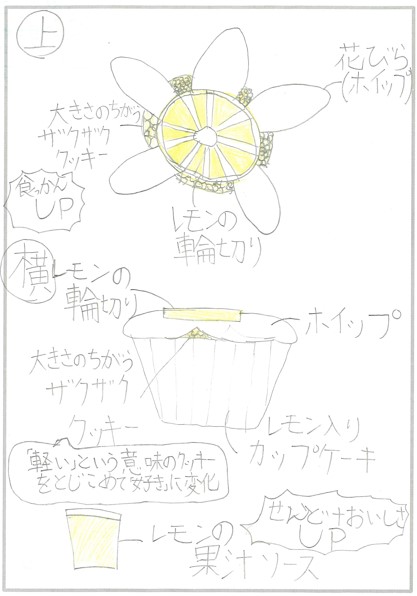 上
花びら
(ホイップ)
大きさのちがう
ザクザク
クッキー
食っかん
UP
レモンの
輪切り
横
レモンの
輪切り
ホイップ
大きさのちがう
ザクザク
クッキー
レモン入り
カップケーキ
「軽い」という意味のクッキー
をとじこめて"好き"に変化
せんど+おいしさ
UP
レモンの
果汁ソース